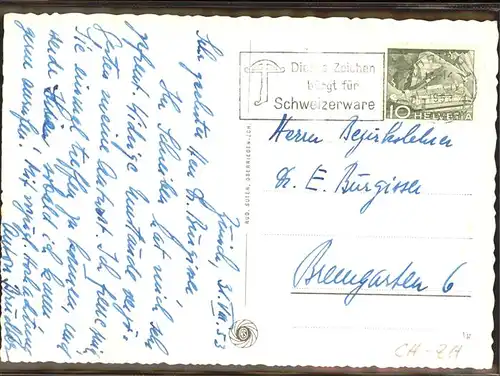 Zürich, 3. VIII. 53
Sehr geehrter Herr Dr. Burgisser
Ihr Schreiben hat mich sehr
gefreut. Widrige Umstände
meine Antwort. Ich freue mich,
Sie einmal treffen zu können, und
werde Ihnen sobald ich kann
gerne anrufen. Mit vorzügl. Hochachtung
RUD. SUTER, OBERRIEDEN-ZCH.
Dieses Zeichen
bürgt für
Schweizerware
10 HELVETIA
Herrn Bezirkslehrer
Dr. E. Bürgisser
Bremgarten 6
CH-ZH